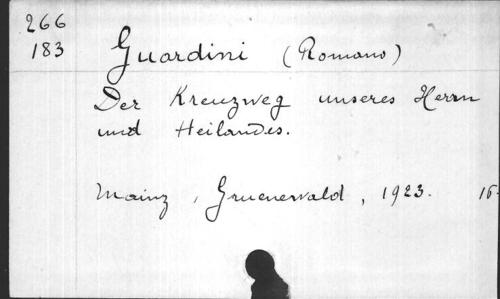 266
183
Guardini (Romano)
Der Kreuzweg unseres Herrn
und Heilandes.
Mainz, Gruenewald, 1923. 16-